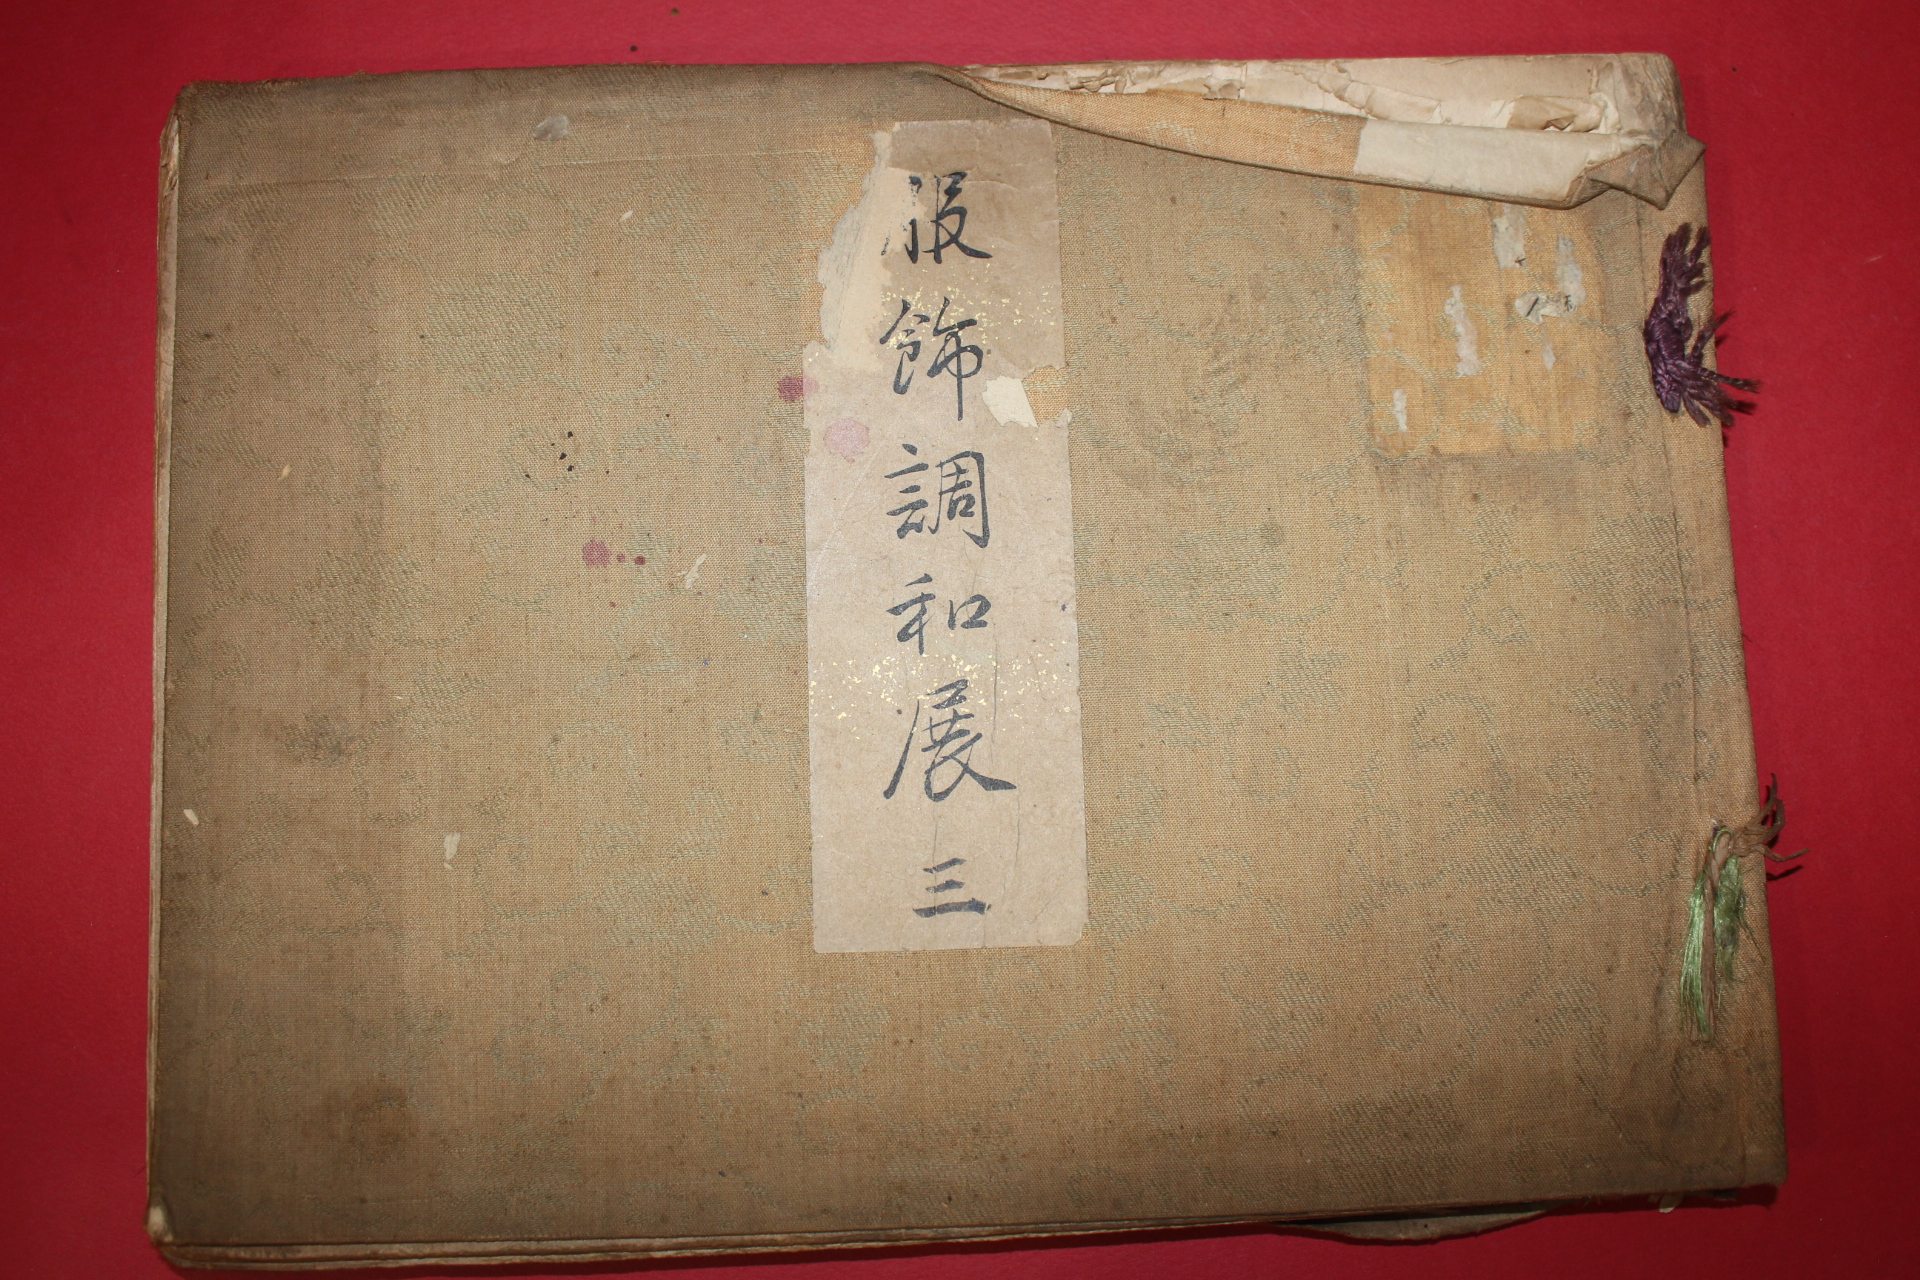 服飾調和展三